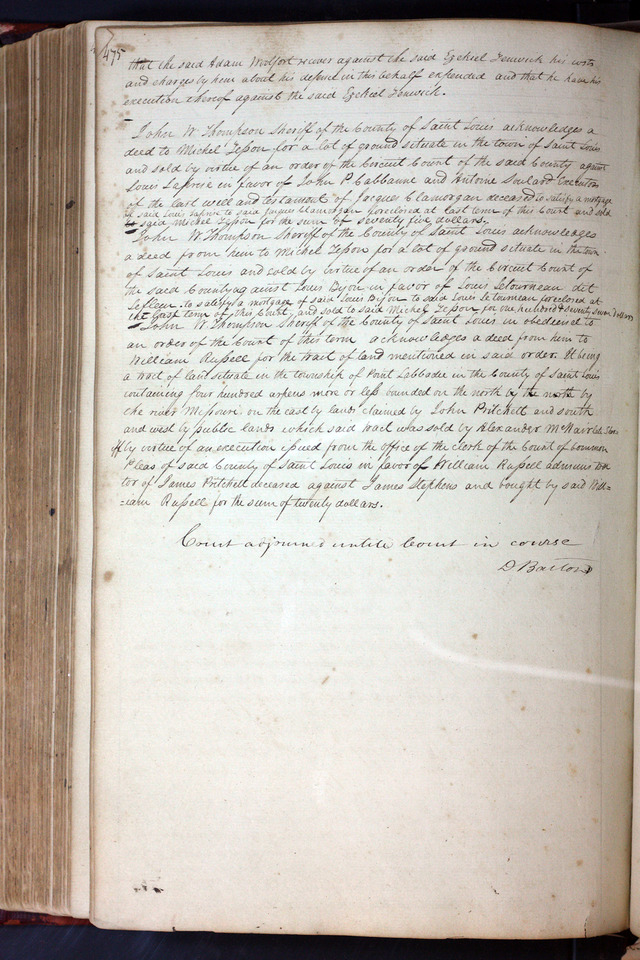 475
that the said Adam Wolfort recover against the said Ezekiel Fenwick his costs
and charges by him about his defence in this behalf expended and that he have his
execution thereof against the said Ezekiel Fenwick.
John W. Thompson Sheriff of the County of Saint Louis acknowledges a
deed to Michel Tesson for a lot of ground situate in the town of Saint Louis
and sold by virtue of an order of the Circuit Court of the said County against
Louis Laprise in favor of John P. Cabbanne and Antoine Soulard Executors
of the last will and testament of Jacques Clamorgan deceased to satisfy a mortgage
of said Louis Laprise to said Jacques Clamorgan foreclosed at last term of this Court and sold
to said Michel Tesson for the sum of seventy five dollars.
John W. Thompson Sheriff of the County of Saint Louis acknowledges
a deed from him to Michel Tesson for a lot of ground situate in the town
of Saint Louis and sold by virtue of an order of the Circuit Court of
the said County against Louis Dyon in favor of Louis Letourneau dit
Lefleur to satisfy a mortgage of said Louis Dyon to said Louis Letourneau foreclosed at
the last term of this Court, and sold to said Michel Tesson for one hundred & seventy seven dollars
John W. Thompson Sheriff of the County of Saint Louis in obedience to
an order of the Court of this term acknowledges a deed from him to
William Russell for the tract of land mentioned in said order. It being
a tract of land situate in the township of Point Labbadie in the County of Saint Louis
containing four hundred arpens more or less bounded on the north by the north by
the river Missouri on the east by lands claimed by John Pritchett and south
and west by public lands which said tract was sold by Alexander McNair late Sher
iff by virtue of an execution issued from the office of the clerk of the Court of Common
Pleas of said County of Saint Louis in favor of William Russell administra
tor of James Pritchett deceased against James Stephens and bought by said Will=
=iam Russell for the sum of twenty dollars.
Court adjourned untill Court in course
D Barton